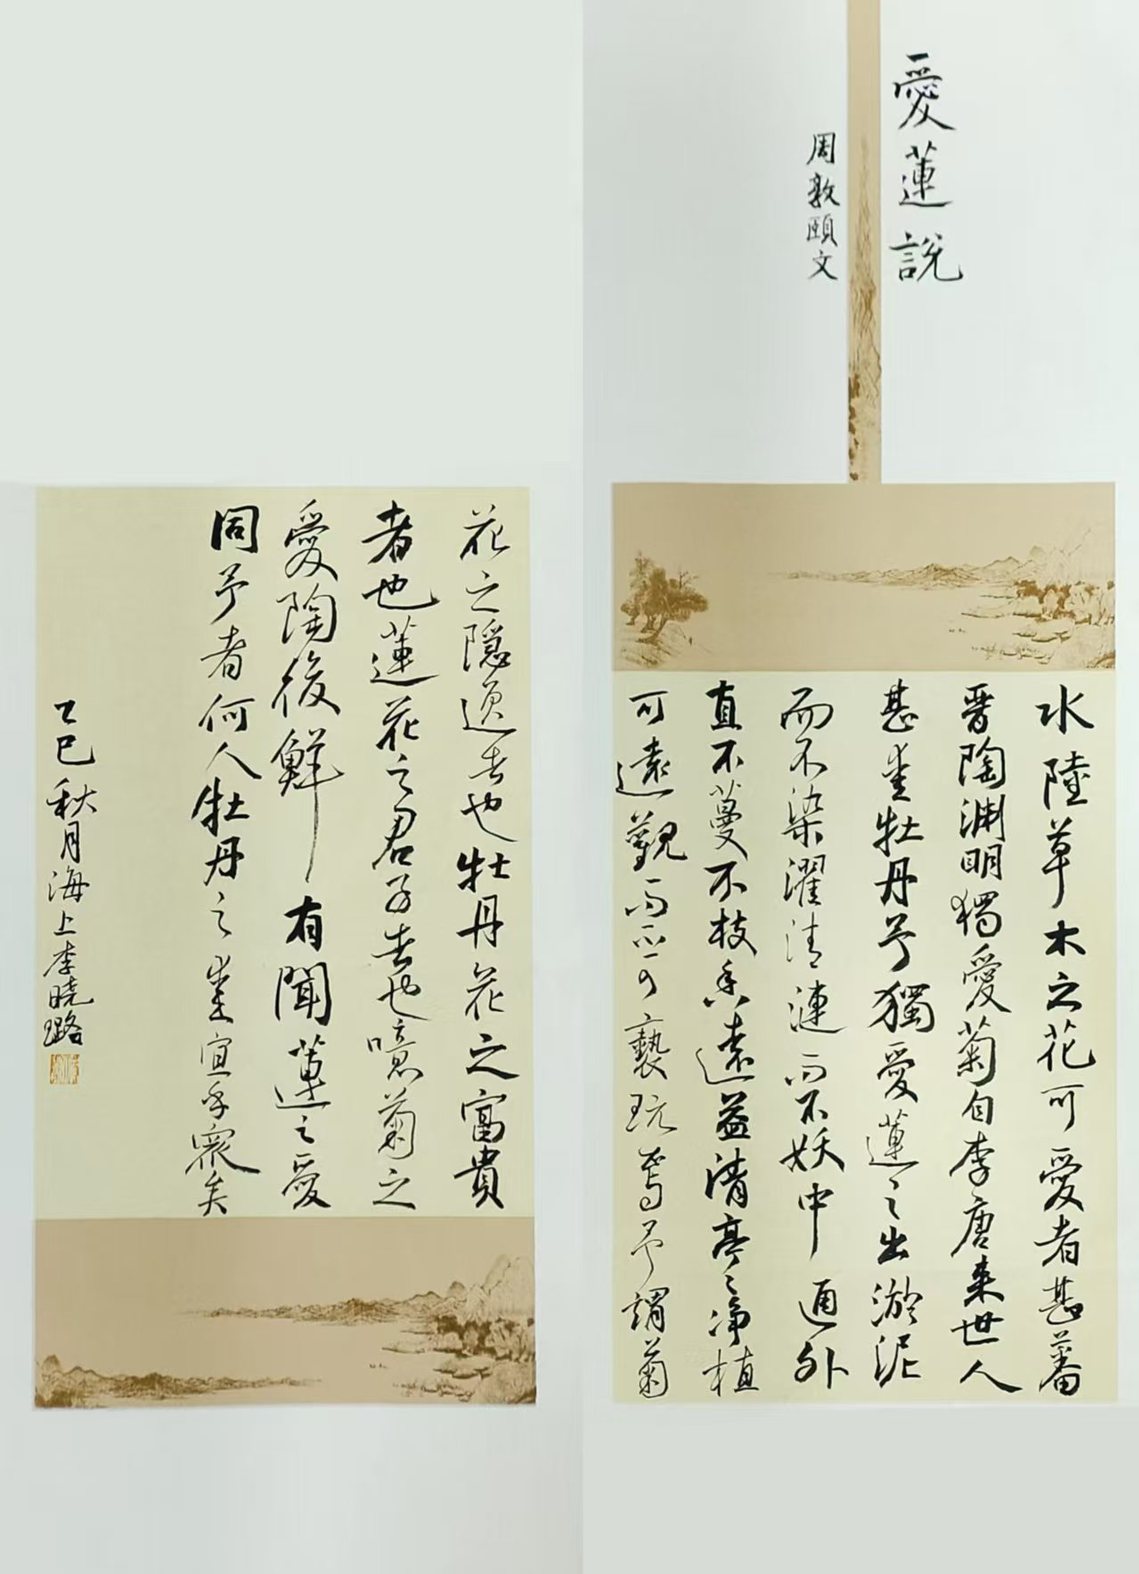 愛蓮說
周敦頤文
水陸草木之花可愛者甚蕃
晉陶渊明獨愛菊自李唐来世人
甚愛牡丹予獨愛蓮之出淤泥
而不染濯清漣而不妖中通外
直不蔓不枝香遠益清亭々净植
可遠觀而不可褻玩焉予謂菊
花之隱逸者也牡丹花之富貴
者也蓮花之君子者也噫菊之
愛陶後鮮有聞蓮之愛
同予者何人牡丹之愛宜乎眾矣
乙巳秋月海上李晓璐